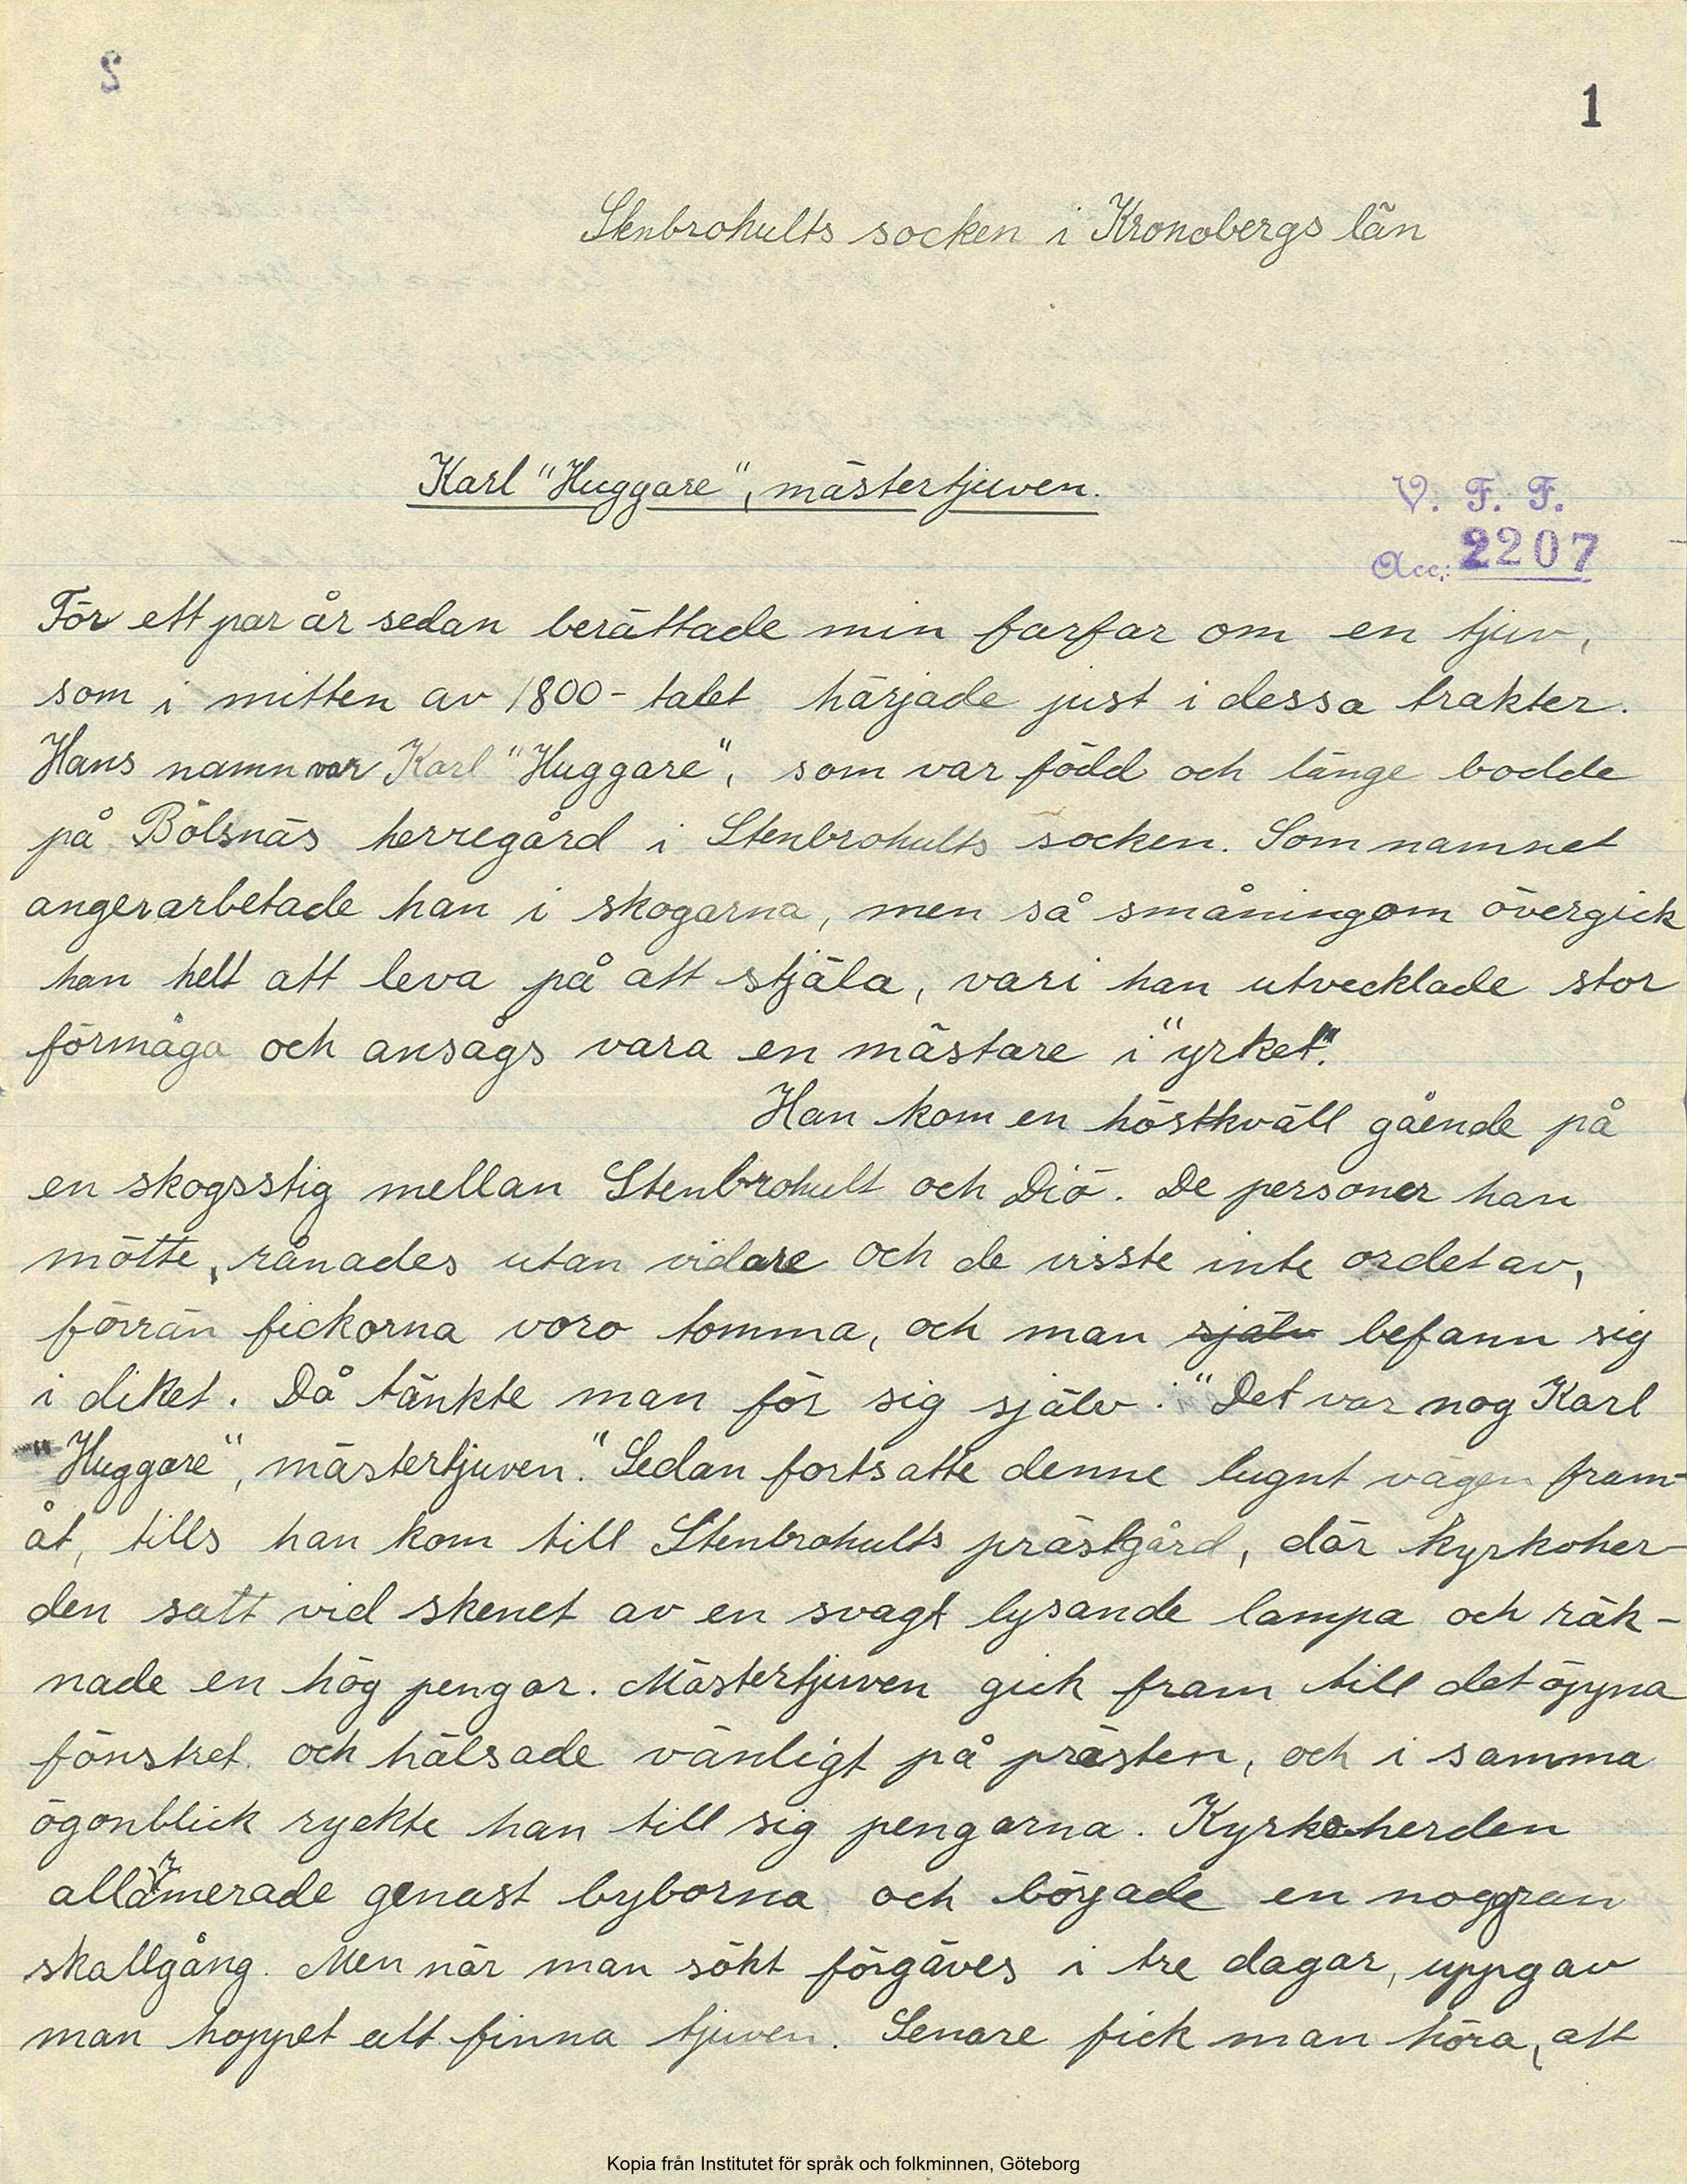 1
Stenbrohults socken i Kronobergs län
Karl "Huggare", mästertjuven.
V. F. F.
Acc: 2207
För ett par år sedan berättade min farfar om en tjuv,
som i mitten av 1800-talet härjade just i dessa trakter.
Hans namn var Karl "Huggare", som var född och länge bodde
på Bölsnäs herregård i Stenbrohults socken. Som namnet
anger arbetade han i skogarna, men så småningom övergick
han helt att leva på att stjäla, vari han utvecklade stor
förmåga och ansågs vara en mästare i "yrket".
Han kom en höstkväll gående på
en skogsstig mellan Stenbrohult och Diö. De personer han
mötte, rånades utan vidare och de visste inte ordet av,
förrän fickorna voro tomma, och man själv befann sig
i diket. Då tänkte man för sig själv: "Det var nog Karl
"Huggare", mästertjuven." Sedan fortsatte denne lugnt vägen fram-
åt, tills han kom till Stenbrohults prästgård, där kyrkoher-
den satt vid skenet av en svagt lysande lampa och räk-
nade en hög pengar. Mästertjuven gick fram till det öppna
fönstret och hälsade vänligt på prästen, och i samma
ögonblick ryckte han till sig pengarna. Kyrkoherden
allarmerade genast byborna och började en noggran
skallgång. Men när man sökt förgäves i tre dagar, uppgav
man hoppet att finna tjuven. Senare fick man höra, att
Kopia från Institutet för språk och folkminnen, Göteborg